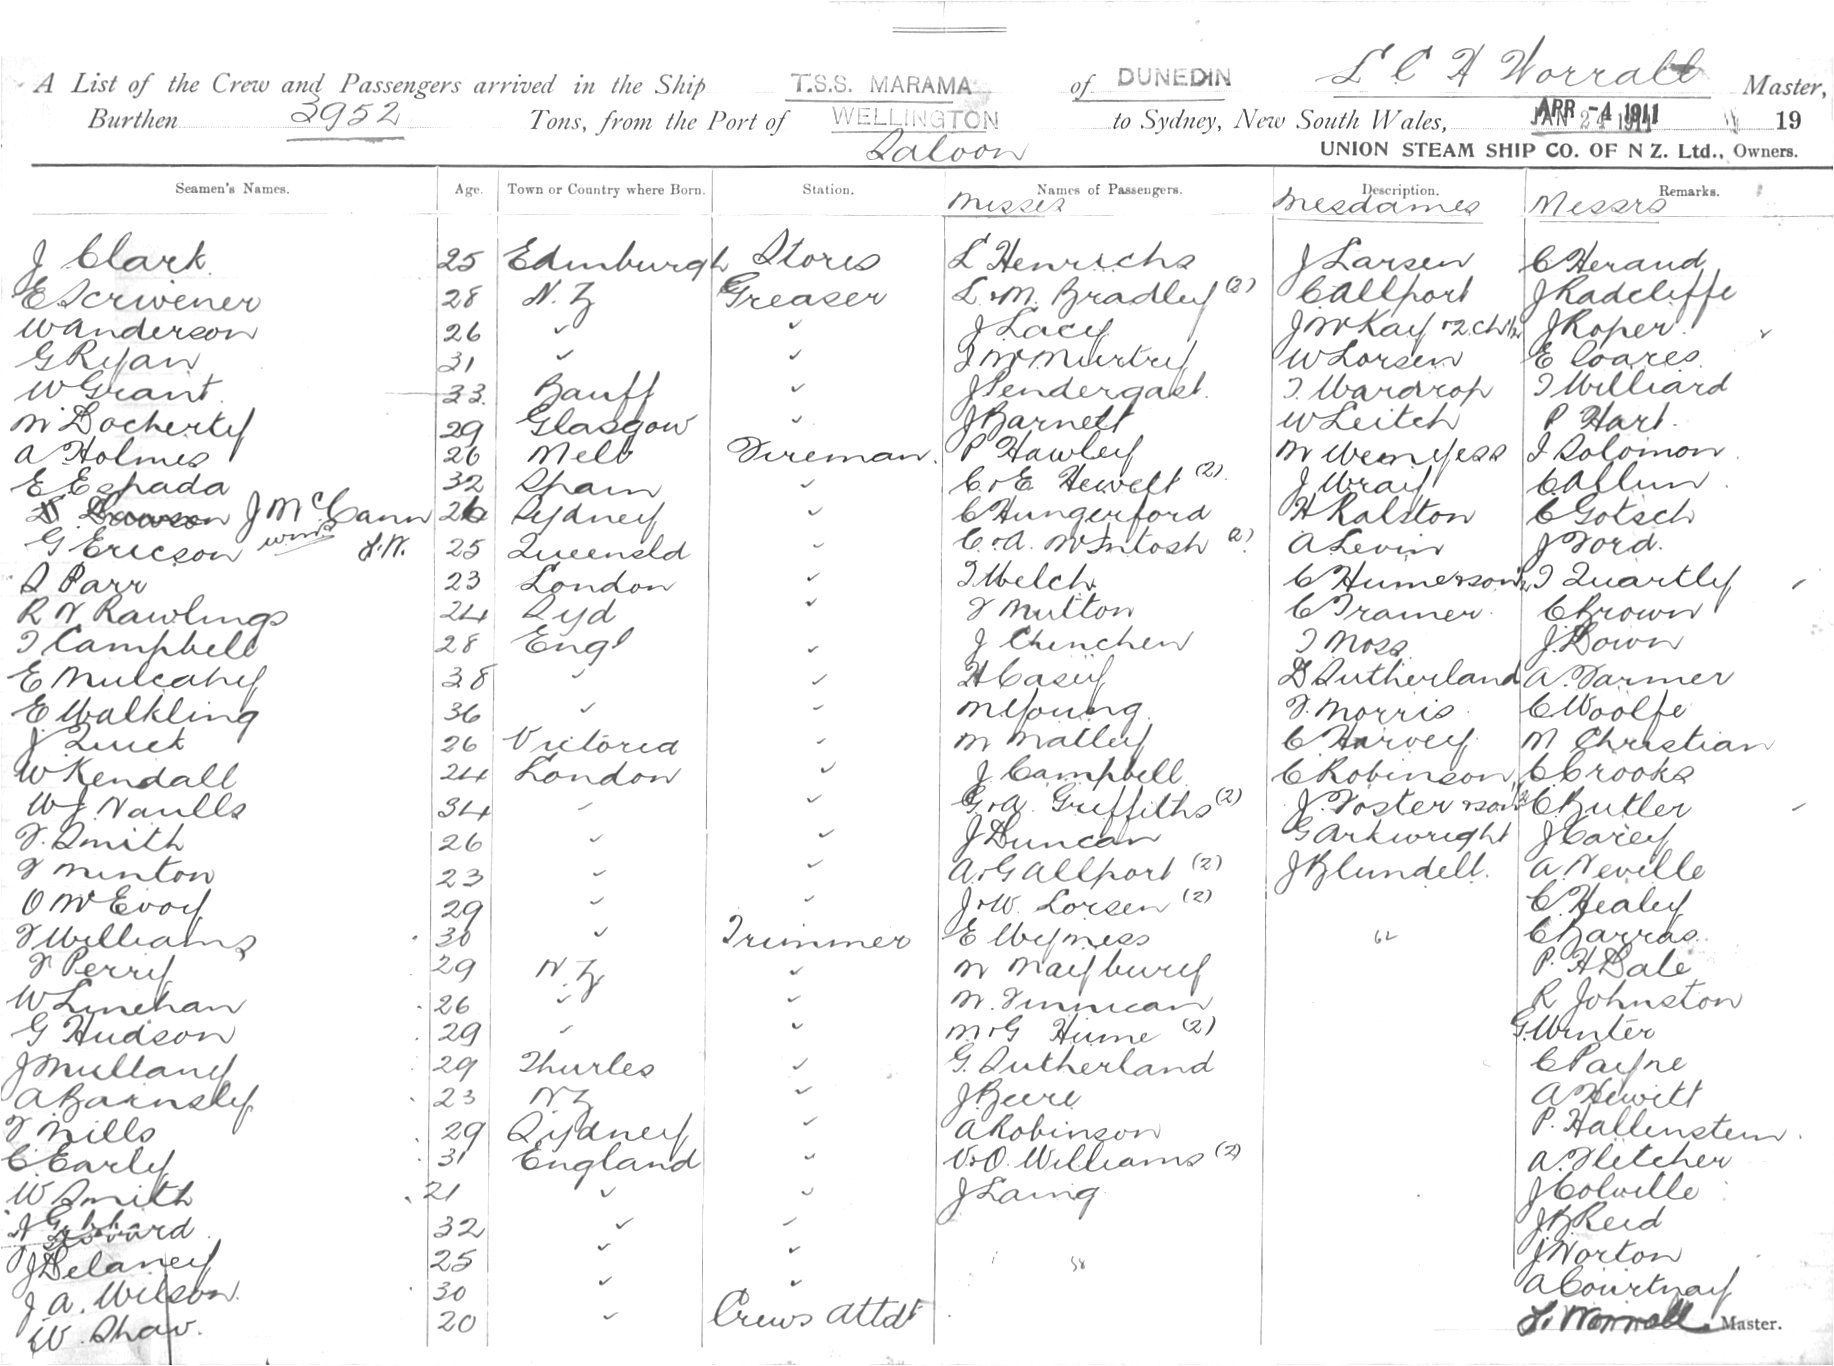 A List of the Crew and Passengers arrived in the Ship T.S.S. MARAMA of DUNEDIN L C H Worrall Master,
Burthen 3952 Tons, from the Port of WELLINGTON to Sydney, New South Wales, APR -4 1911 JAN 24 1911 19
Saloon UNION STEAM SHIP CO. OF N Z. Ltd., Owners.
Seamen's Names. Age. Town or Country where Born. Station. Names of Passengers. Description. Remarks.
Misses Mesdames Messrs
J Clark 25 Edinburgh Stores L Henrichs J Larsen C Heraud
E Scrivener 28 N.Z Greaser L & M. Bradley (2) C Allport J Radcliffe
W Anderson 26 " " J Lacey J McKay & 2 ch J Roper
G Ryan 31 " " J McMurtry W Lorsen E Coares
W Grant 33 Banff " J Pendergast T Wardrop T Williard
M Docherty 29 Glasgow " J Barnett W Leitch P Hart
A Holmes 26 Melb Fireman P Hawley M Wemyess I Solomon
E Espada 32 Spain " C & E Hewett (2) J Wray C Allun
J McCann 26 Sydney " C Hungerford H Ralston C Gotsch
G Ericson 25 Queensld " C & A. McIntosh (2) A Levin J Ford
S Parr 23 London " T Welch C Humerson T Quartly
R F Rawlings 24 Syd " F Mutton C Tramer C Brown
T Campbell 28 Engl " J Chinchen T Moss J Down
E Mulcahy 38 " " H Casey D Sutherland A. Farmer
E Walkling 36 " " M Young F. Morris C Woolfe
J Quick 26 Victoria " M Malley C Harvey M Christian
W Kendall 24 London " J Campbell C Robinson C Crooks
W J Naulls 34 " " G & A. Griffiths (2) J. Foster & son C Butler
F. Smith 26 " " J Duncan G Arkwright J Carey
F Minton 23 " " A & G Allport (2) J Blundell. A. Neville
O McEvoy 29 " " J & W. Lorsen (2) C. Healey
F Williams 30 " Trimmer E Wemess 62 C Barras
F Perry 29 N Z " M Maybury P. H Dale
W Linehan 26 " " M. Finnican R Johnston
G Hudson 29 " " M & G Hume (2) G. Winter
J Mullany 29 Thurles " G. Sutherland C Payne
A Barnsley 23 N Z " J Beere A Hewitt
F Mills 29 Sydney " A Robinson P. Hallenstein
C. Early 31 England " V. & O. Williams (2) A. Fletcher
W Smith 21 " " J Laing J Colville
32 " " J B Reid
J Delaney 25 " " 58 J Norton
J A. Wilson 30 " " A Courtnay
W. Shaw. 20 " Crews Attdt Worrall Master.